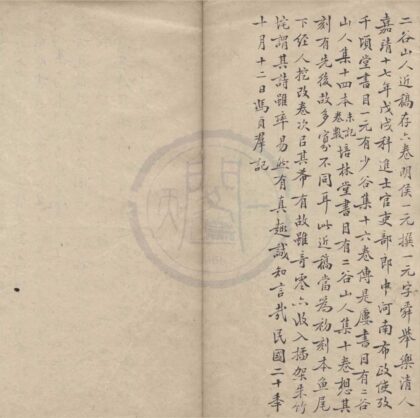 二谷山人近稿存六卷明侯一元撰一元字舜舉樂清人
嘉靖十七年戊戌科進士官吏部郎中河南布政使攷
千頃堂書目一元有少谷集十六卷傳是廔書目有二谷
山人集十四本未記卷數培林堂書目有二谷山人集十卷想其
刻有先後故多寡不同耳此近稿當為初刻本魚尾
下經人挖改卷次㠯其希有故雖奇零亦收入插架朱竹
垞謂其詩雖率易然有真趣誠知言哉民國二十年
十月十二日馮貞羣記